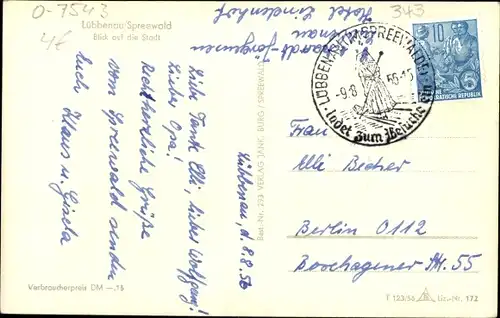 O-7543
4€
343
Lübbenau/Spreewald
Blick auf die Stadt
Hotel Lindenhof
Lübbenau, d. 8.8.56
Liebe Tante Elli, lieber Wolfgang!
Lieber Opa!
Recht herzliche Grüße
vom Spreewald senden
Euch Klaus u. Gisela
Verbraucherpreis DM —.15
Best.-Nr. 293 VERLAG JANK, BURG / SPREEWALD
LÜBBENAU
-9.8. 56-15
ladet zum Besuche
10
5
DEMOKRATISCHE REPUBLIK
Frau
Elli Becher
Berlin O 112
Boxhagener Str. 55
T 123/56
Liz.-Nr. 172